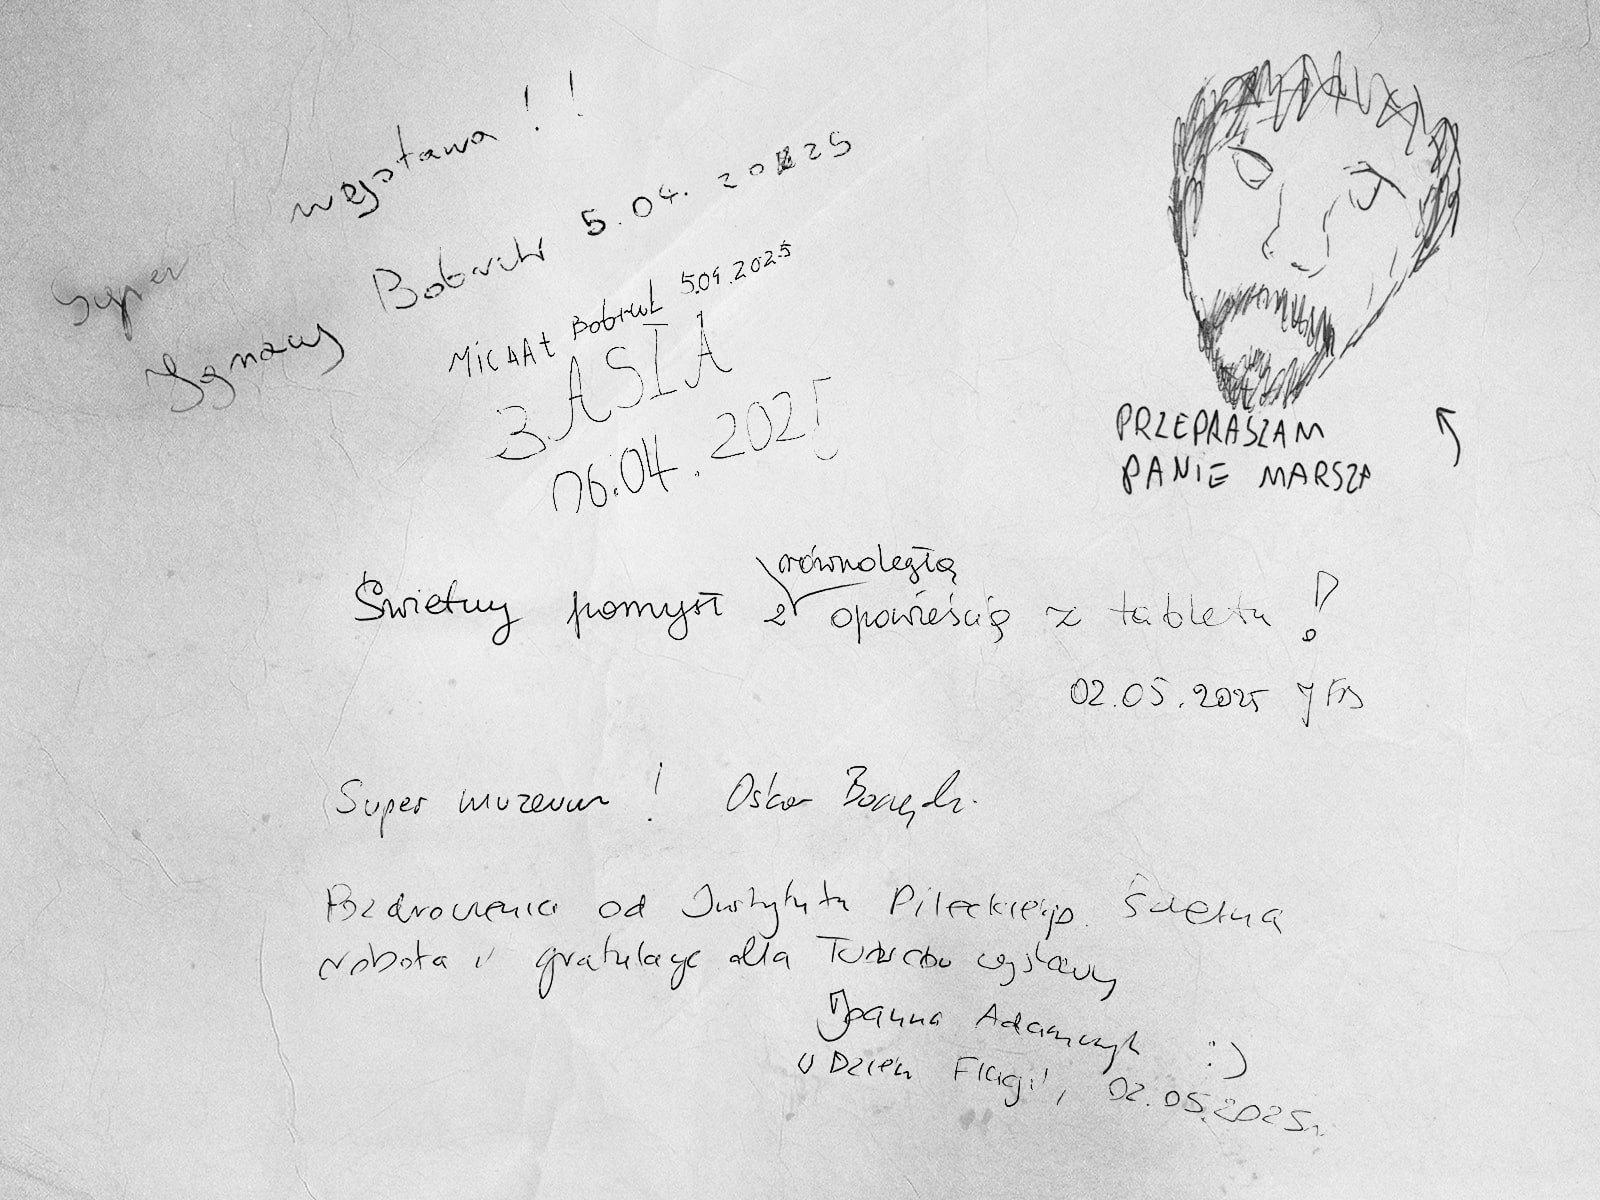 Super wystawa!!
Ignacy Bobruk 5.04.2025
MICHAŁ Bobruk 5.04.2025
BASIA
06.04.2025
PRZEPRASZAM
PANIE MARSZA
Świetny pomysł z równoległą opowieścią z tabletu!
02.05.2025
Super muzeum! Oskar
Pozdrowienia od Instytutu Pileckiego. Świetna
robota i gratulacje dla Twórców wystawy
Joanna Adamczyk :)
w Dzień Flagi, 02.05.2025r.